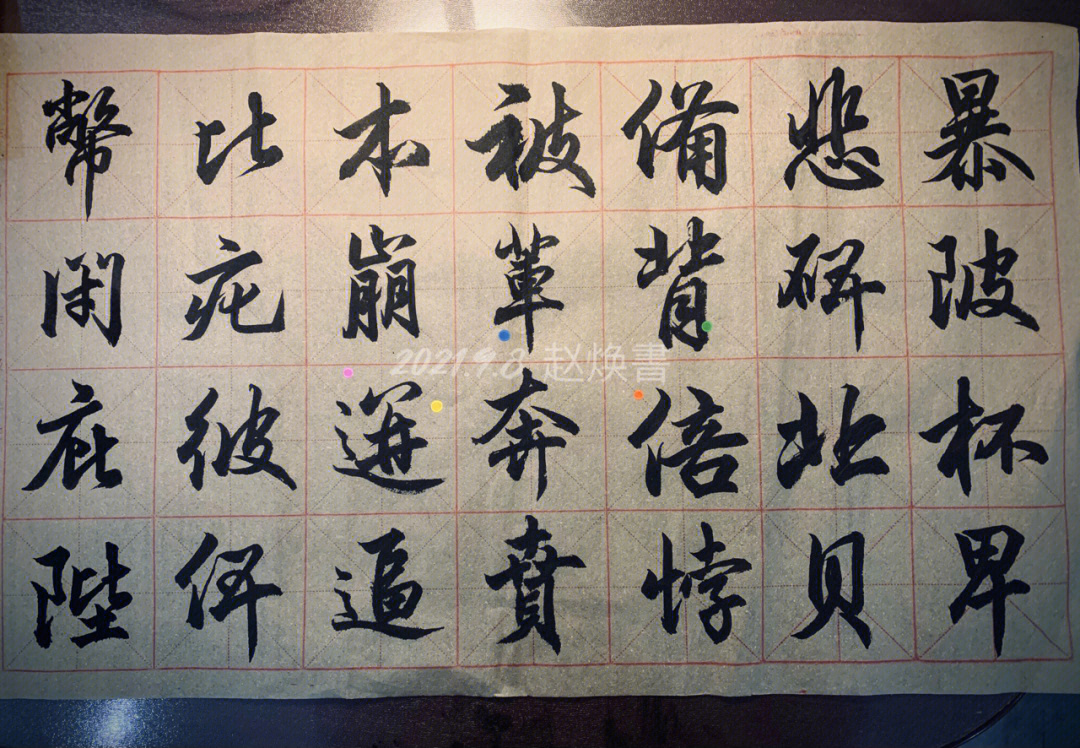 暴陂杯卑
悲碑北贝
備背倍悖
被輩奔賁
本崩迸逼
比疕彼俾
幣閉庇陛
2021.9.8 赵焕書